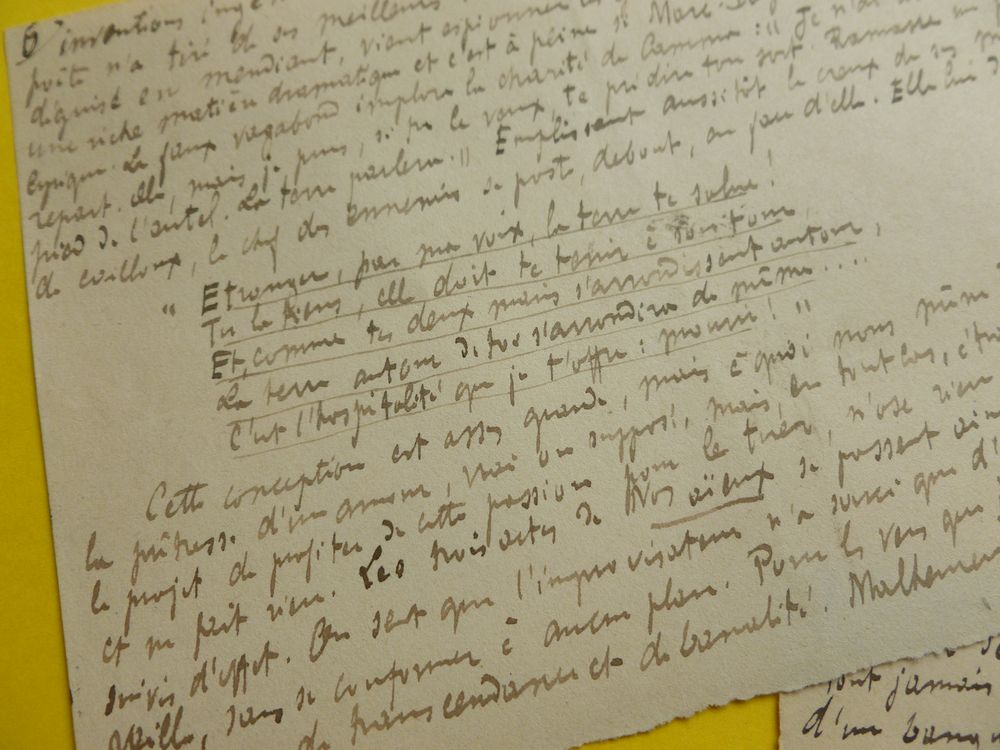 6 inventions
poète n'a tiré de ses meilleurs
déguisé en mendiant, vient espionner
une riche matière dramatique et c'est à peine si Marc
Le faux vagabond implore la charité de Camma : " Je n'ai
repart elle, mais je puis, si tu le veux, te prédire ton sort. Ramasse un
pied de l'autel. La terre parlera. " Emplissant aussitôt le creux de ses
de cailloux, le chef des ennemis se poste, debout, au feu d'elle. Elle lui
" Etranger, par ma voix, la terre te salue !
Tu la tiens, elle doit te tenir à son tour,
Et, comme tes deux mains s'arrondissent autour,
La terre autour de toi s'arrondira de même .....
C'est l'hospitalité que je t'offre : mourir ! "
Cette conception est assez grande, mais à quoi nous mène
la prêtresse d'un amour, vrai ou supposé, mais, en tout cas,
le projet de profiter de cette passion pour le tuer, n'ose rien
et ne fait rien. Les trois actes de Nos aïeux se passent
suivis d'effet. On sent que l'improvisateur n'a souci que
sans se conformer à aucun plan. Pour les vers que
de transcendance et de banalité.
sont jamais
d'un